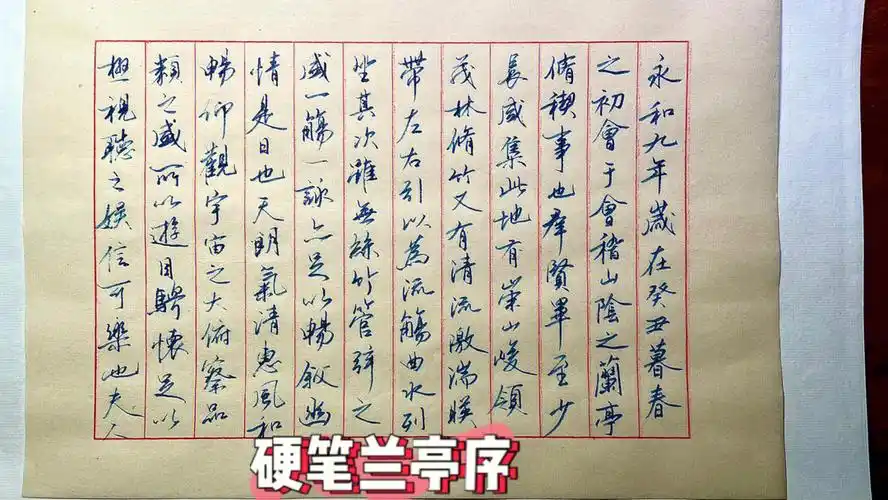 永和九年歲在癸丑暮春
之初會于會稽山陰之蘭亭
脩禊事也羣賢畢至少
長咸集此地有崇山峻領
茂林脩竹又有清流激湍暎
帶左右引以為流觴曲水列
坐其次雖無絲竹管弦之
盛一觴一詠亦足以暢敘幽
情是日也天朗氣清惠風和
暢仰觀宇宙之大俯察品
類之盛所以遊目騁懷足以
極視聽之娛信可樂也夫人
硬笔兰亭序